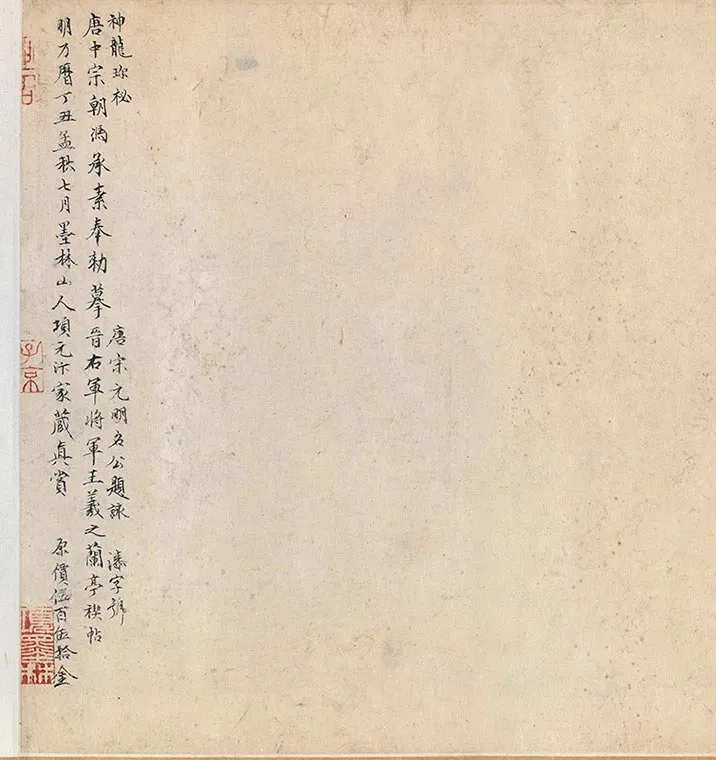 神龍珎秘
唐宋元明名公題詠 字號
唐中宗朝馮承素奉勅摹晉右軍將軍王羲之蘭亭禊帖
明万曆丁丑孟秋七月墨林山人項元汴家藏真賞 原價伍百伍拾金